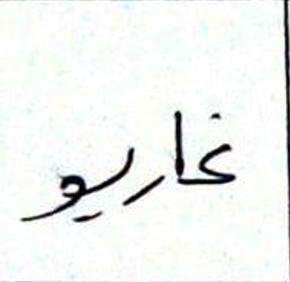 غاريو